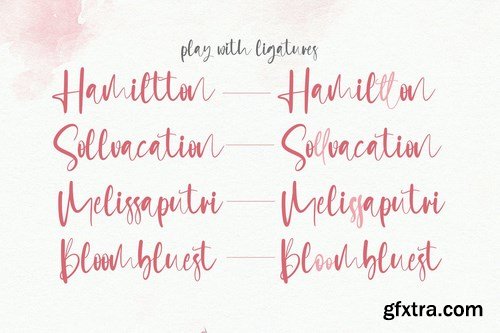 play with ligatures
Hamiltton Hamiltton
Sollvacation Sollvacation
Melissaputri Melissaputri
Bloombluest Bloombluest
gfxtra.com